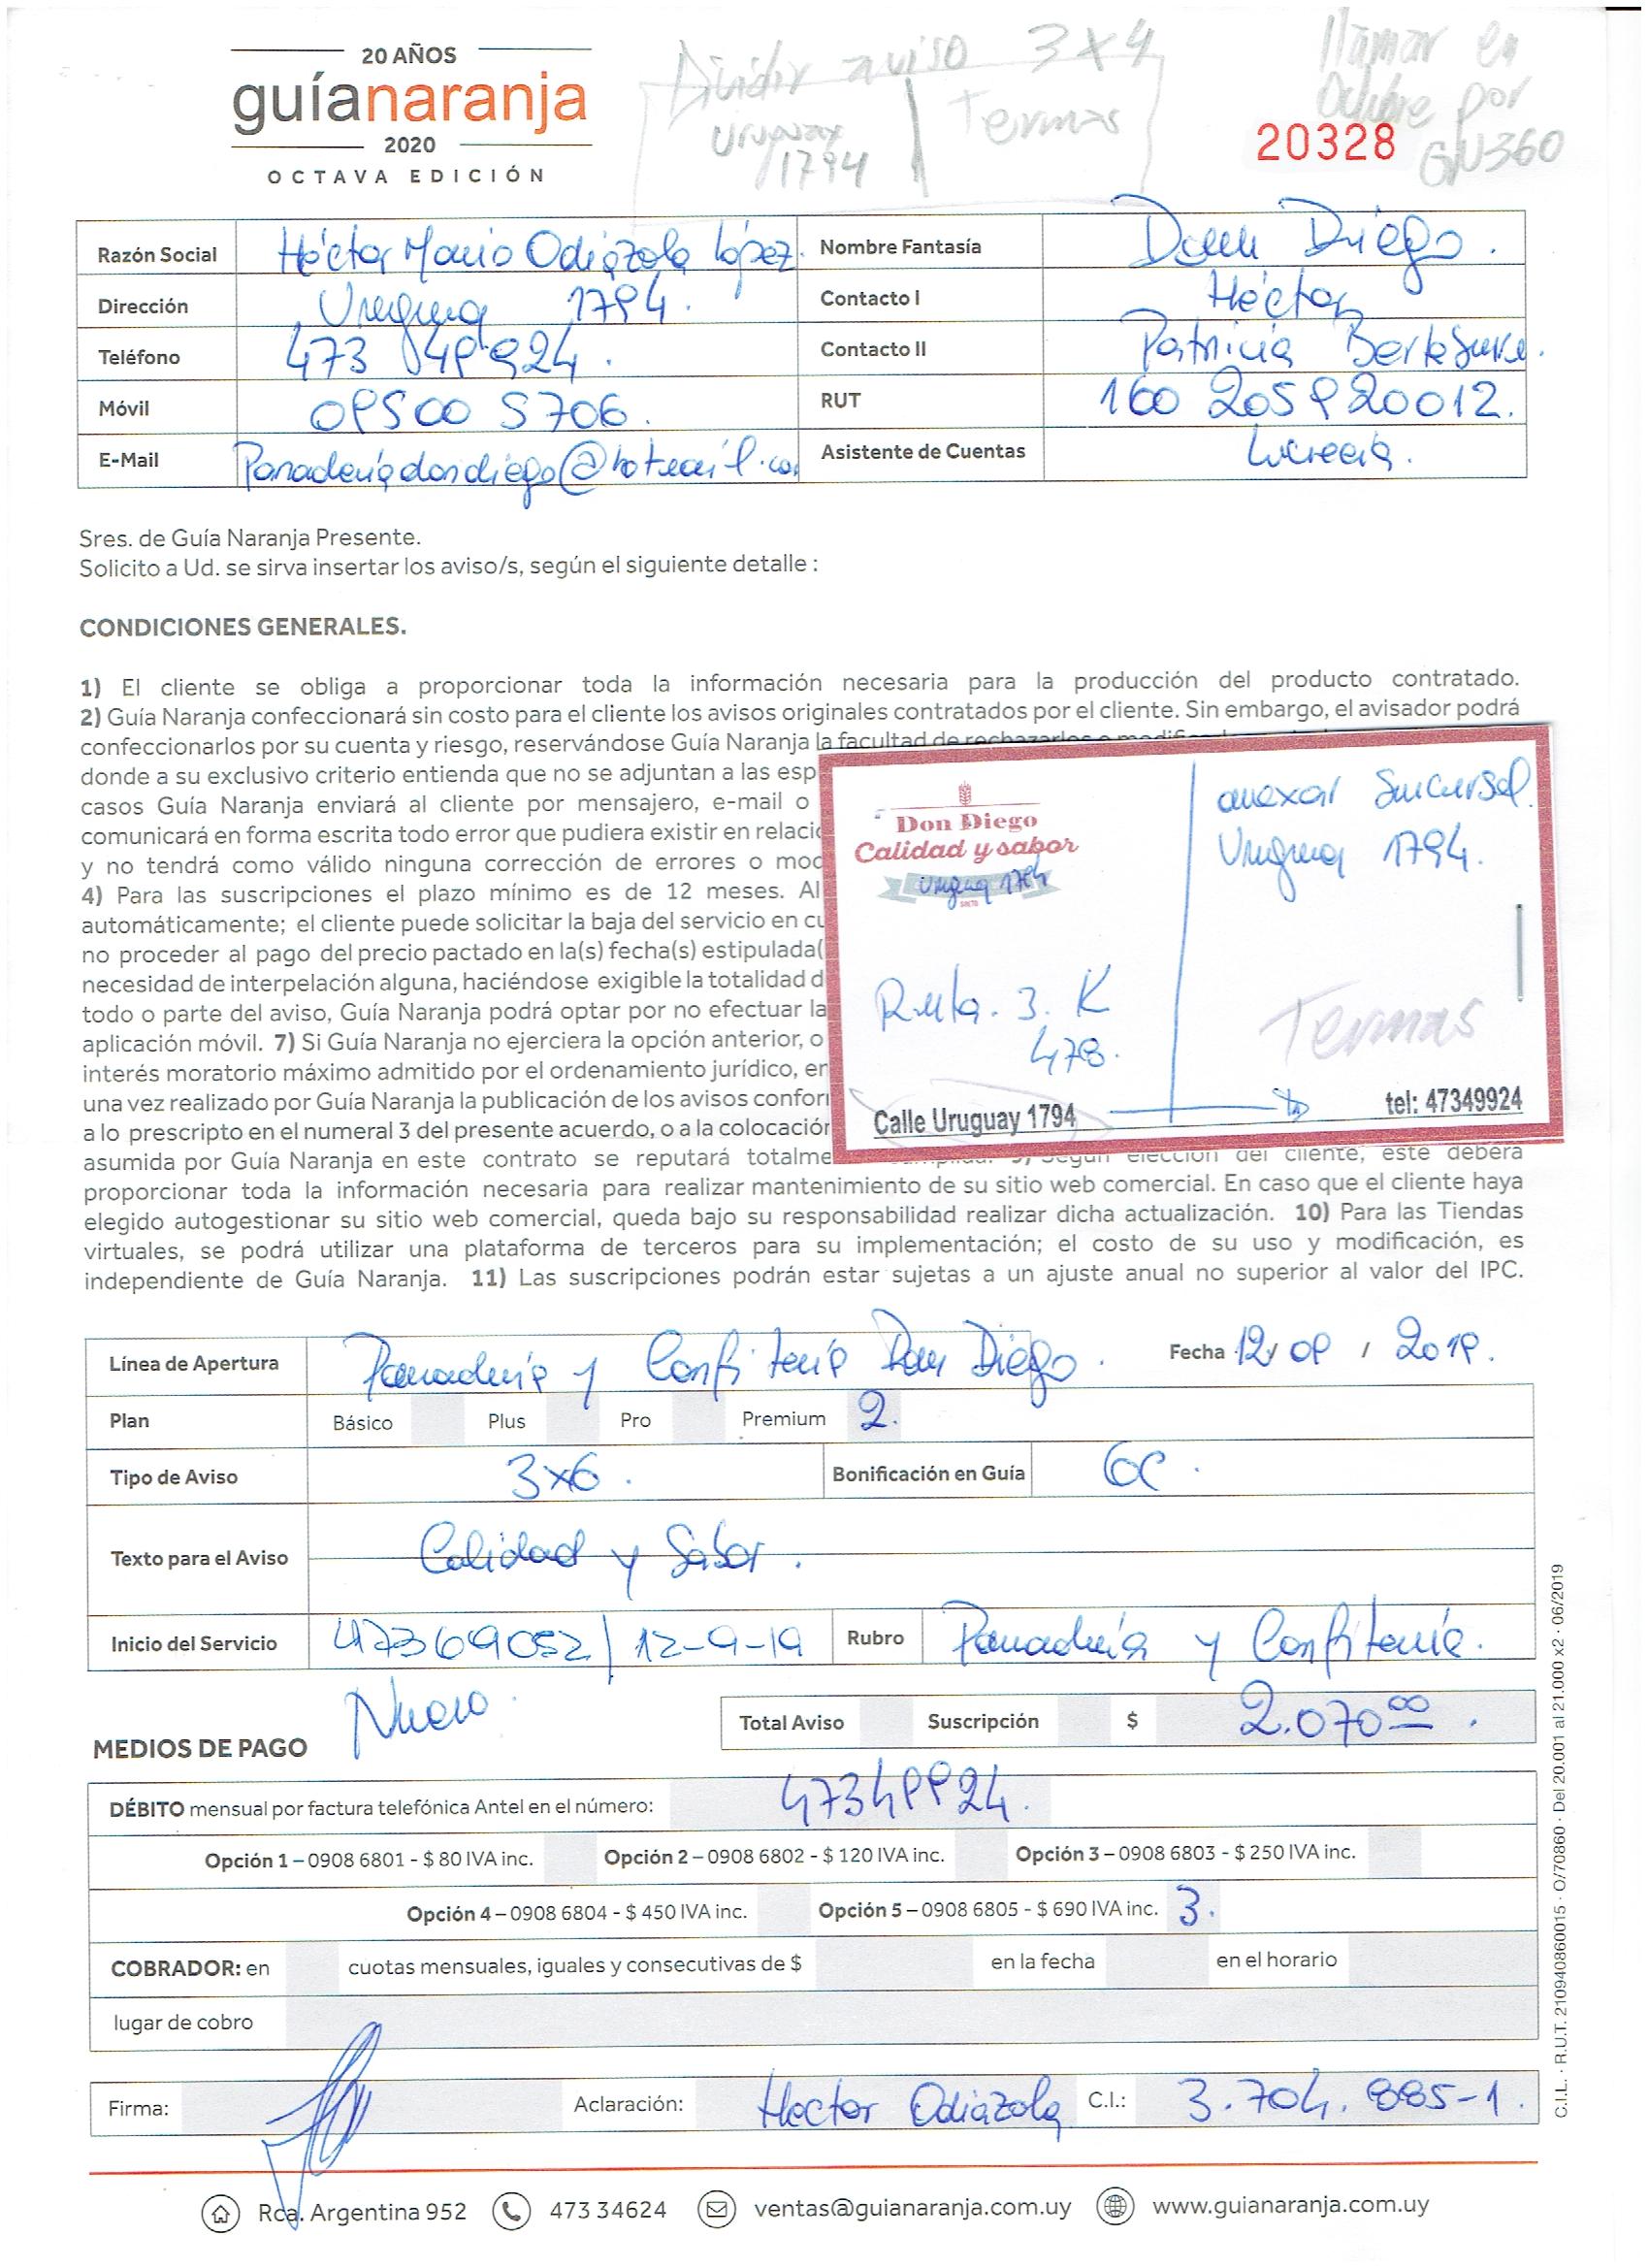 20 AÑOS
guíanaranja
2020
OCTAVA EDICIÓN
Dividir aviso 3x4
Uruguay 1794
Termas
llamar en
Octubre por
GU360
20328
Razón Social Héctor Mario Odiázola López. Nombre Fantasía Don Diego.
Dirección Uruguay 1794. Contacto I Héctor
Teléfono 473 49924. Contacto II Patricia
Móvil 09500 5706. RUT 160 205920012.
E-Mail Panaderiadondiego@hotmail.co Asistente de Cuentas Lucrecia.
Sres. de Guía Naranja Presente.
Solicito a Ud. se sirva insertar los aviso/s, según el siguiente detalle :
CONDICIONES GENERALES.
1) El cliente se obliga a proporcionar toda la información necesaria para la producción del producto contratado.
2) Guía Naranja confeccionará sin costo para el cliente los avisos originales contratados por el cliente. Sin embargo, el avisador podrá
confeccionarlos por su cuenta y riesgo, reservándose Guía Naranja la facultad de
donde a su exclusivo criterio entienda que no se adjuntan a las esp
casos Guía Naranja enviará al cliente por mensajero, e-mail o
comunicará en forma escrita todo error que pudiera existir en relaci
y no tendrá como válido ninguna corrección de errores o mod
4) Para las suscripciones el plazo mínimo es de 12 meses. Al
automáticamente; el cliente puede solicitar la baja del servicio en cu
no proceder al pago del precio pactado en la(s) fecha(s) estipulada(
necesidad de interpelación alguna, haciéndose exigible la totalidad d
todo o parte del aviso, Guía Naranja podrá optar por no efectuar la
aplicación móvil. 7) Si Guía Naranja no ejerciera la opción anterior, o
interés moratorio máximo admitido por el ordenamiento jurídico, en
una vez realizado por Guía Naranja la publicación de los avisos confor
a lo prescripto en el numeral 3 del presente acuerdo, o a la colocación
asumida por Guía Naranja en este contrato se reputará totalme
Según elección del cliente, este deberá
proporcionar toda la información necesaria para realizar mantenimiento de su sitio web comercial. En caso que el cliente haya
elegido autogestionar su sitio web comercial, queda bajo su responsabilidad realizar dicha actualización. 10) Para las Tiendas
virtuales, se podrá utilizar una plataforma de terceros para su implementación; el costo de su uso y modificación, es
independiente de Guía Naranja. 11) Las suscripciones podrán estar sujetas a un ajuste anual no superior al valor del IPC.
Don Diego
Calidad y sabor
Uruguay 1794
SALTO
Ruta. 3. K
478.
Calle Uruguay 1794
anexar Sucursal.
Uruguay 1794.
Termas
tel: 47349924
Línea de Apertura Panadería y Confitería Don Diego. Fecha 12/ 09 / 2019.
Plan Básico Plus Pro Premium 2.
Tipo de Aviso 3x6. Bonificación en Guía 6C.
Texto para el Aviso Calidad y Sabor.
Inicio del Servicio 47369052 / 12-9-19 Rubro Panadería y Confitería.
Nuevo.
Total Aviso Suscripción $ 2.070 00.
MEDIOS DE PAGO
DÉBITO mensual por factura telefónica Antel en el número: 47349924.
Opción 1 – 0908 6801 - $ 80 IVA inc. Opción 2 – 0908 6802 - $ 120 IVA inc. Opción 3 – 0908 6803 - $ 250 IVA inc.
Opción 4 – 0908 6804 - $ 450 IVA inc. Opción 5 – 0908 6805 - $ 690 IVA inc. 3.
COBRADOR: en cuotas mensuales, iguales y consecutivas de $ en la fecha en el horario
lugar de cobro
Firma: Aclaración: Hector Odiázola C.I.: 3.704.885-1.
Rca. Argentina 952 473 34624 ventas@guianaranja.com.uy www.guianaranja.com.uy
C.I.L. · R.U.T. 210940860015 · O/70860 · Del 20.001 al 21.000 x2 · 06/2019